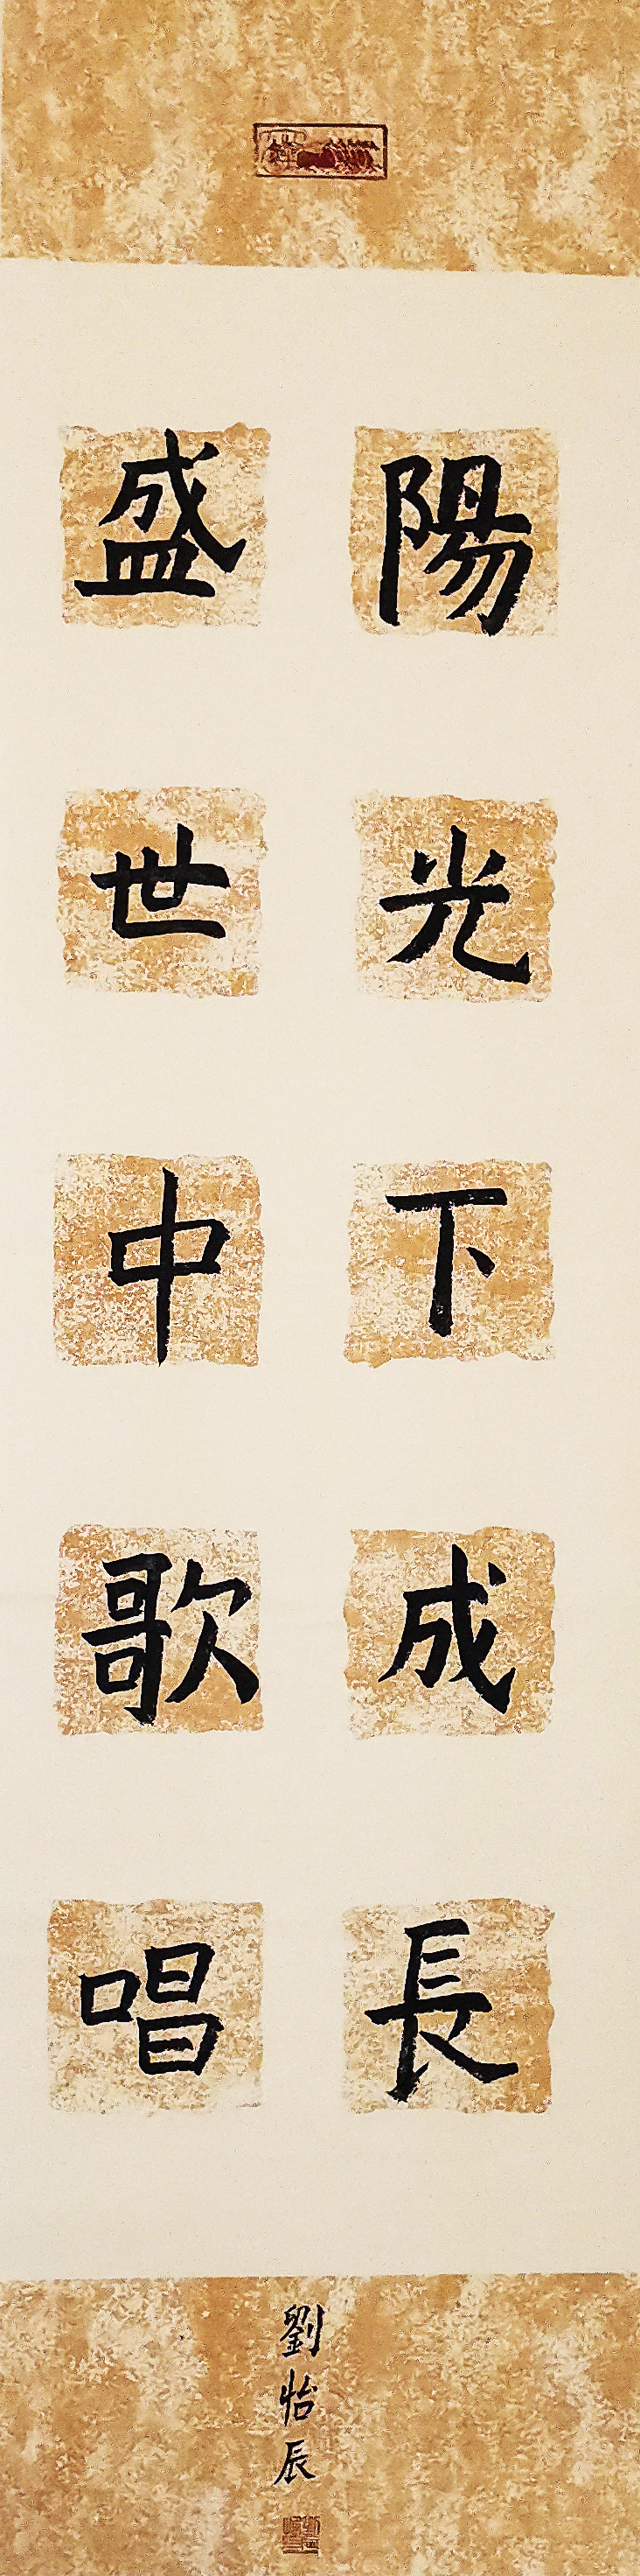 陽光下成長
盛世中歌唱
劉怡辰